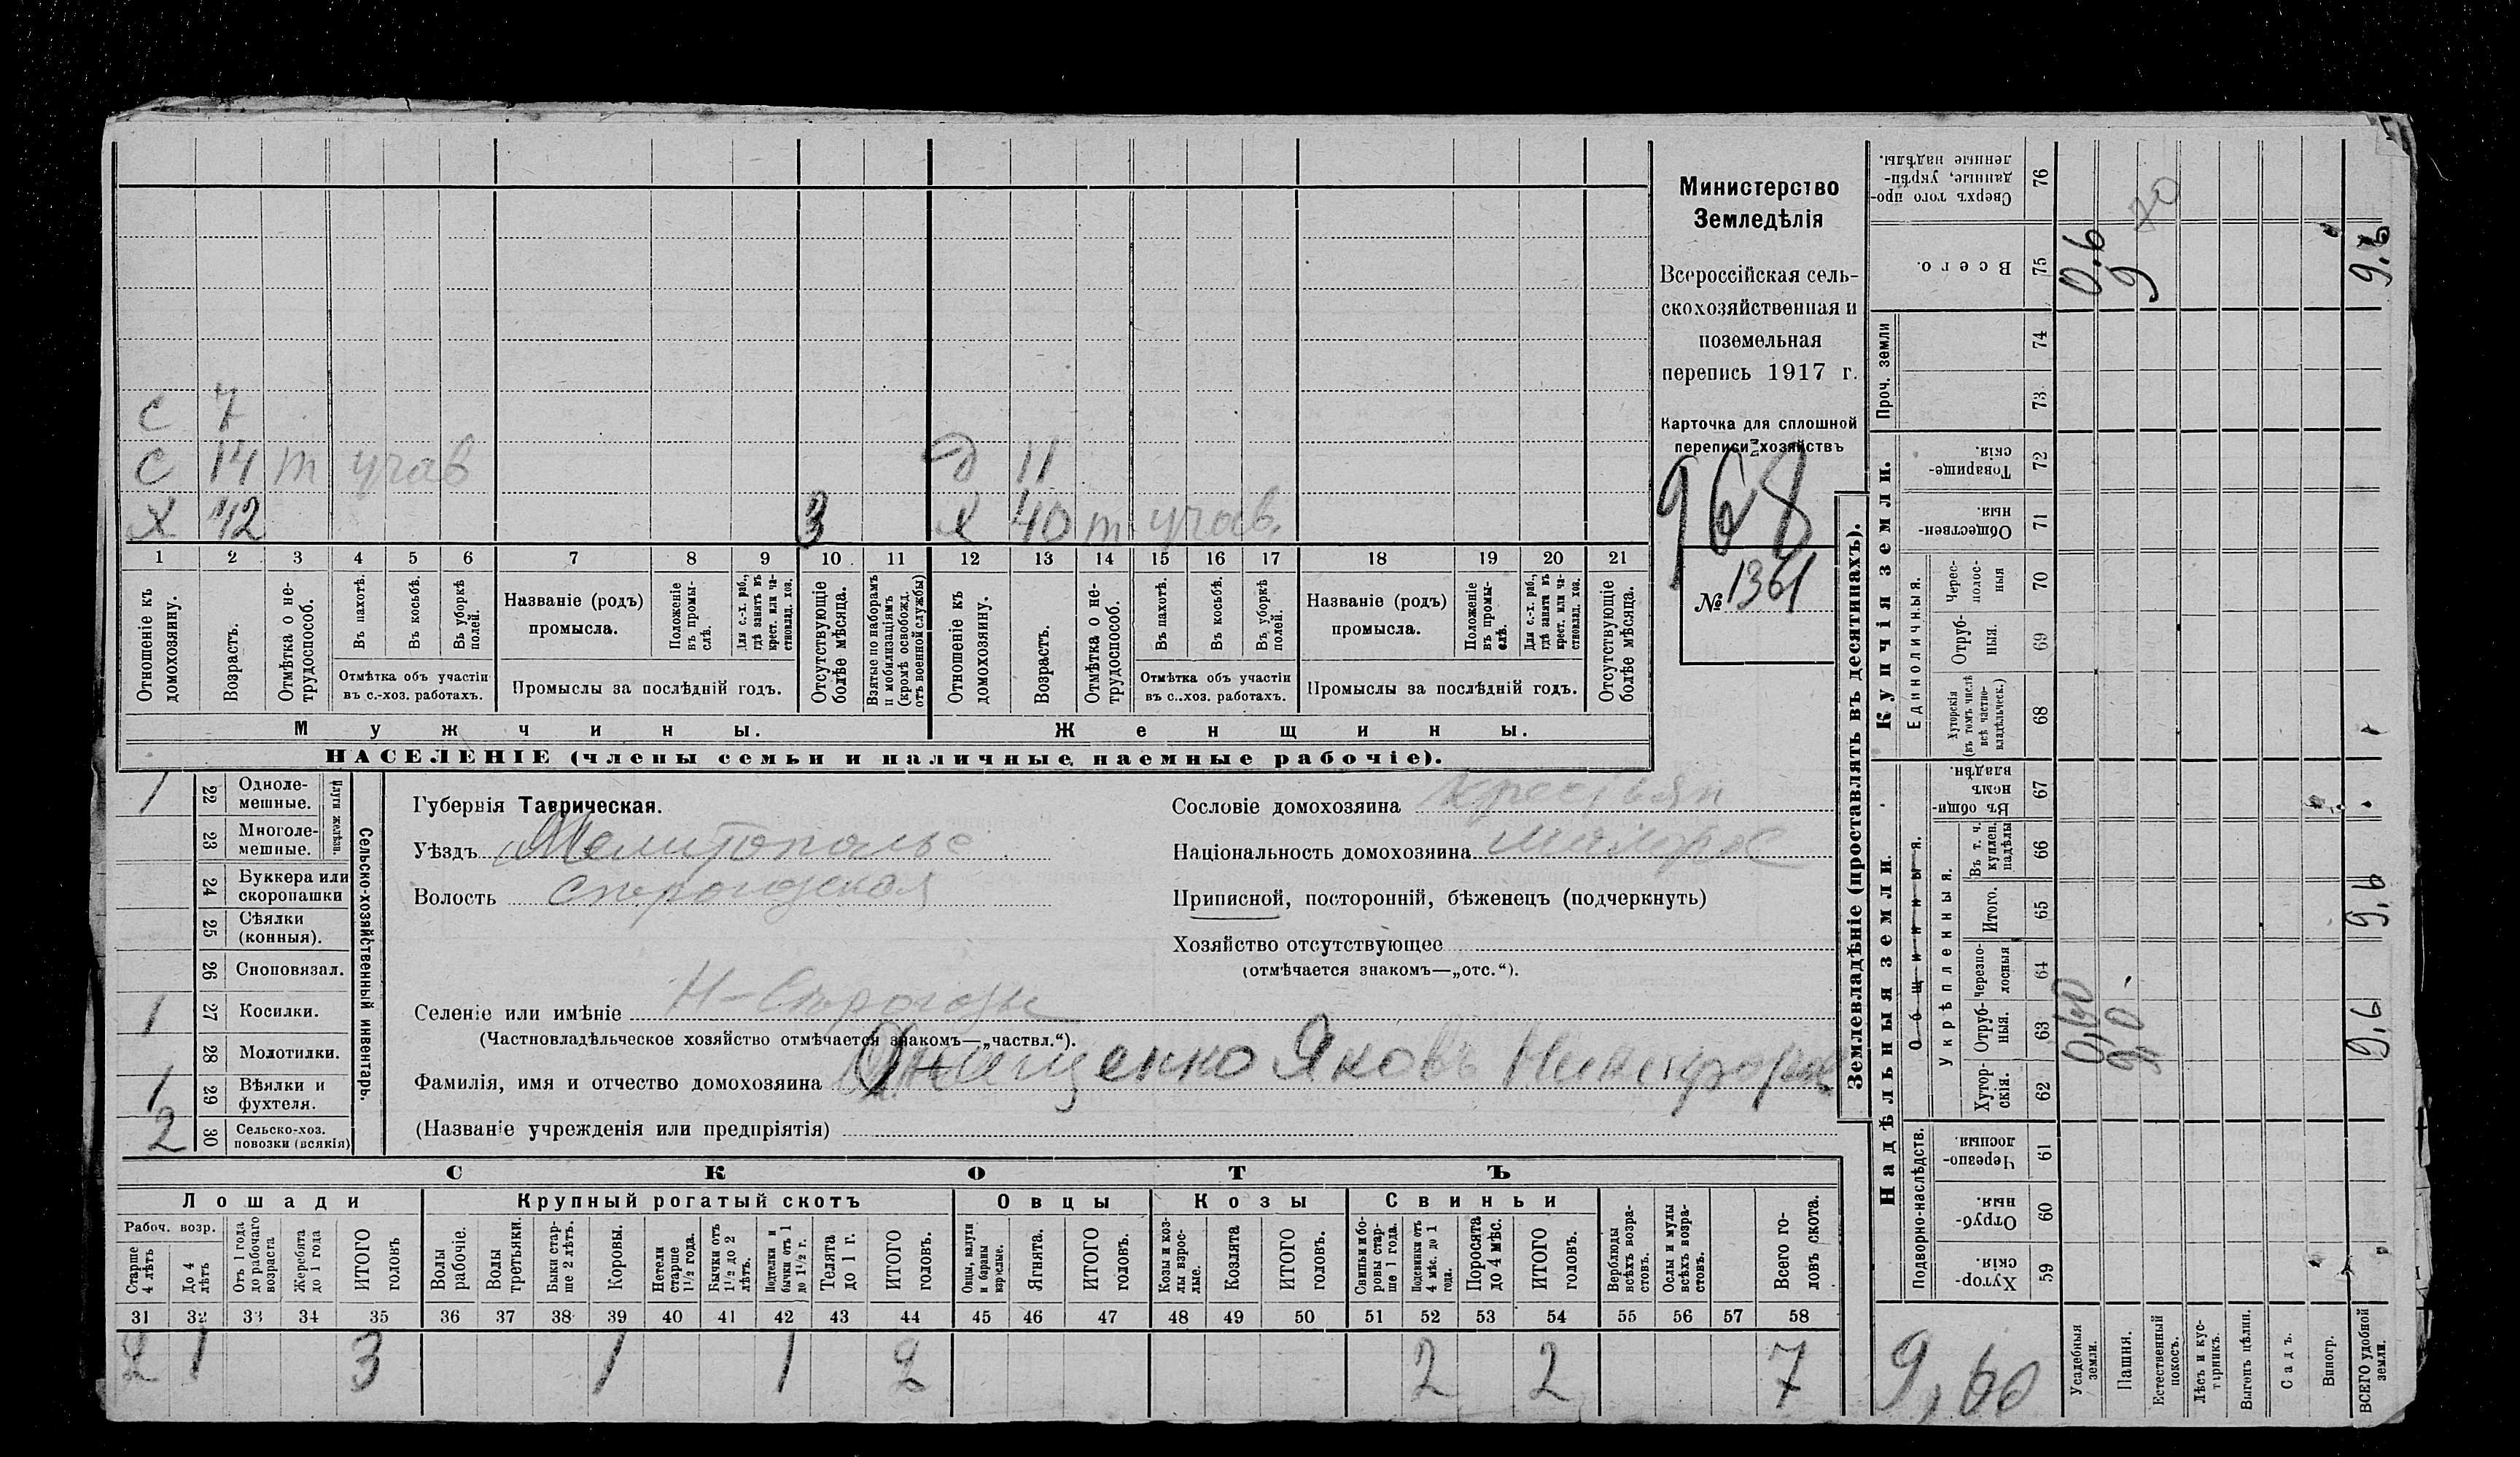 С 7
С 14 т учав Д 11
Х 42 3 Х 40 т учав.
1 2 3 4 5 6 7 8 9 10 11 12 13 14 15 16 17 18 19 20 21
Отношеніе къ домохозяину.
Возрастъ.
Отмѣтка о не-трудоспособ.
Въ пахотѣ.
Въ косьбѣ.
Въ уборкѣ полей.
Отмѣтка объ участіи
въ с.-хоз. работахъ.
Названіе (родъ)
промысла.
Положеніе въ промы-слѣ.
Для с.-х. раб., гдѣ занятъ въ крест. или ча-стновлад. хоз.
Промыслы за послѣдній годъ.
Отсутствующіе болѣе мѣсяца.
Взятые по наборамъ и мобилизаціямъ (кромѣ освобожд. отъ военной службы)
Отношеніе къ домохозяину.
Возрастъ.
Отмѣтка о не-трудоспособ.
Въ пахотѣ.
Въ косьбѣ.
Въ уборкѣ полей.
Отмѣтка объ участіи
въ с.-хоз. работахъ.
Названіе (родъ)
промысла.
Положеніе въ промы-слѣ.
Для с.-х. раб., гдѣ занята въ крест. или ча-стновлад. хоз.
Промыслы за послѣдній годъ.
Отсутствующіе болѣе мѣсяца.
Мужчины. Женщины.
НАСЕЛЕНІЕ (члены семьи и наличные наемные рабочіе).
Министерство
Земледѣлія
Всероссійская сель-
скохозяйственная и
поземельная
перепись 1917 г.
Карточка для сплошной
переписи хозяйствъ
968
№ 1361
1 22 Одноле-мешные.
23 Многоле-мешные.
Плуги желѣзн.
24 Буккера или скоропашки
25 Сѣялки (конныя).
26 Сноповязал.
1 27 Косилки.
28 Молотилки.
1 29 Вѣялки и фухтеля.
2 30 Сельско-хоз. повозки (всякія)
Сельско-хозяйственный инвентарь.
Губернія Таврическая.
Уѣздъ Мелитополье
Волость
Селеніе или имѣніе Н-Строгозы
(Частновладѣльческое хозяйство отмѣчается знакомъ—„частвл.“).
Фамилія, имя и отчество домохозяина Яковъ
(Названіе учрежденія или предпріятія)
Сословіе домохозяина крестьян
Національность домохозяина малорос
Приписной, посторонній, бѣженецъ (подчеркнуть)
Хозяйство отсутствующее
(отмѣчается знакомъ—„отс.“).
СКОТЪ
Лошади Крупный рогатый скотъ Овцы Козы Свиньи
Рабоч. возр.
Старше 4 лѣтъ
До 4 лѣтъ
Отъ 1 года до рабочаго возраста
Жеребята до 1 года
ИТОГО головъ
Волы рабочіе.
Волы третьяки.
Быки стар-ше 2 лѣтъ.
Коровы.
Нетели старше 1½ года.
Бычки отъ 1½ до 2 лѣтъ.
Подтелки и бычки отъ 1 до 1½ г.
Телята до 1 г.
ИТОГО головъ.
Овцы, валухи и бараны взрослые.
Ягнята.
ИТОГО головъ.
Козы и коз-лы взрос-лые.
Козлята
ИТОГО головъ.
Свиньи и бо-ровы стар-ше 1 года.
Подсвинки отъ 4 мѣс. до 1 года.
Поросята до 4 мѣс.
ИТОГО головъ.
Верблюды всѣхъ возра-стовъ.
Ослы и мулы всѣхъ возра-стовъ.
Всего го-ловъ скота.
31 32 33 34 35 36 37 38 39 40 41 42 43 44 45 46 47 48 49 50 51 52 53 54 55 56 57 58
2 1 3 1 1 2 2 2 7
Землевладѣніе (проставлять въ десятинахъ).
Надѣльныя земли. Купчія земли. Проч. земли
Подворно-наслѣдств. Общинныя. Укрѣпленныя. Единоличныя.
Хутор-скія. 59
Отруб-ныя. 60
Черезпо-лосныя. 61
Хутор-скія. 62
Отруб-ныя. 63
Черезпо-лосныя 64
Итого. 65
Въ т. ч. куплен. надѣлы 66
Въ общи-номъ владѣн. 67
Хуторскія (въ томъ числѣ всѣ частно-владѣльческ.) 68
Отруб-ныя. 69
Черес-полос-ныя 70
Обществен-ныя. 71
Товарище-скія. 72
73
74
Всего. 75
Сверхъ того про-данные, укрѣп-ленные надѣлы. 76
9,60
Усадебныя земли. 0,60 0.6
Пашня. 9,0. 9
70
Естественный покосъ.
Лѣсъ и кус-тарникъ.
Выгонъ цѣлин.
Садъ.
Виногр.
ВСЕГО удобной земли. 9,6 9,6 9,6